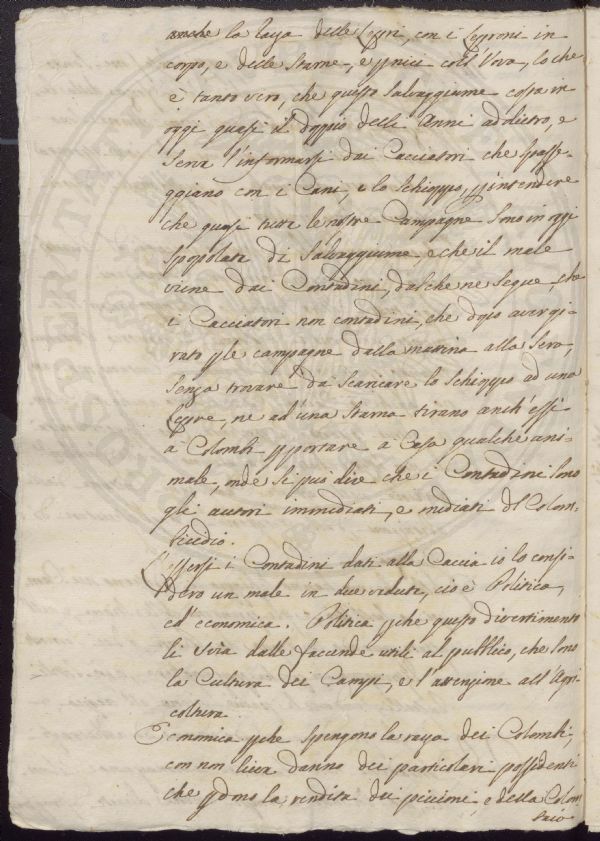 anche la raza delle Lepri, con i Leproni in
corpo, e delle Starne, e pnici coll'Vova, lo che
è tanto vero, che questo Salvaggiume costa in
oggi quasi il doppio delli Anni addietro, e
senza l'informarsi dai Cacciatori che passe-
ggiano con i Cani, e lo Schioppo, s'intendere
che quasi tutte le nostre Campagne sono in oggi
spopolate di Salvaggiume, e che il male
viene dai Contadini, dal che ne segue, che
i Cacciatori non contadini, che dopo aver gi-
rato ple campagne dalla mattina alla sera,
senza trovare da scaricare lo Schioppo ad una
Lepre, ne ad'una Starna tirano anch'essi
a Colombi p portare a Casa qualche ani-
male, onde si può dire che i Contadini sono
gli autori immediati, e mediati del Colom-
bicidio.
L'essersi i Contadini dati alla Caccia io lo consi-
dero un male in due vedute, cioè Politica,
ed'economica. Politica pche questo divertimento
li svia dalle facende utili al pubblico, che sono
la Cultura dei Campi, e l'attenzione all'Agri
coltura.
Economica pche spengono la raza dei Colombi,
con non lieve danno dei particolari possidenti
che pdono la rendita dei piccioni, e della Colom
baia